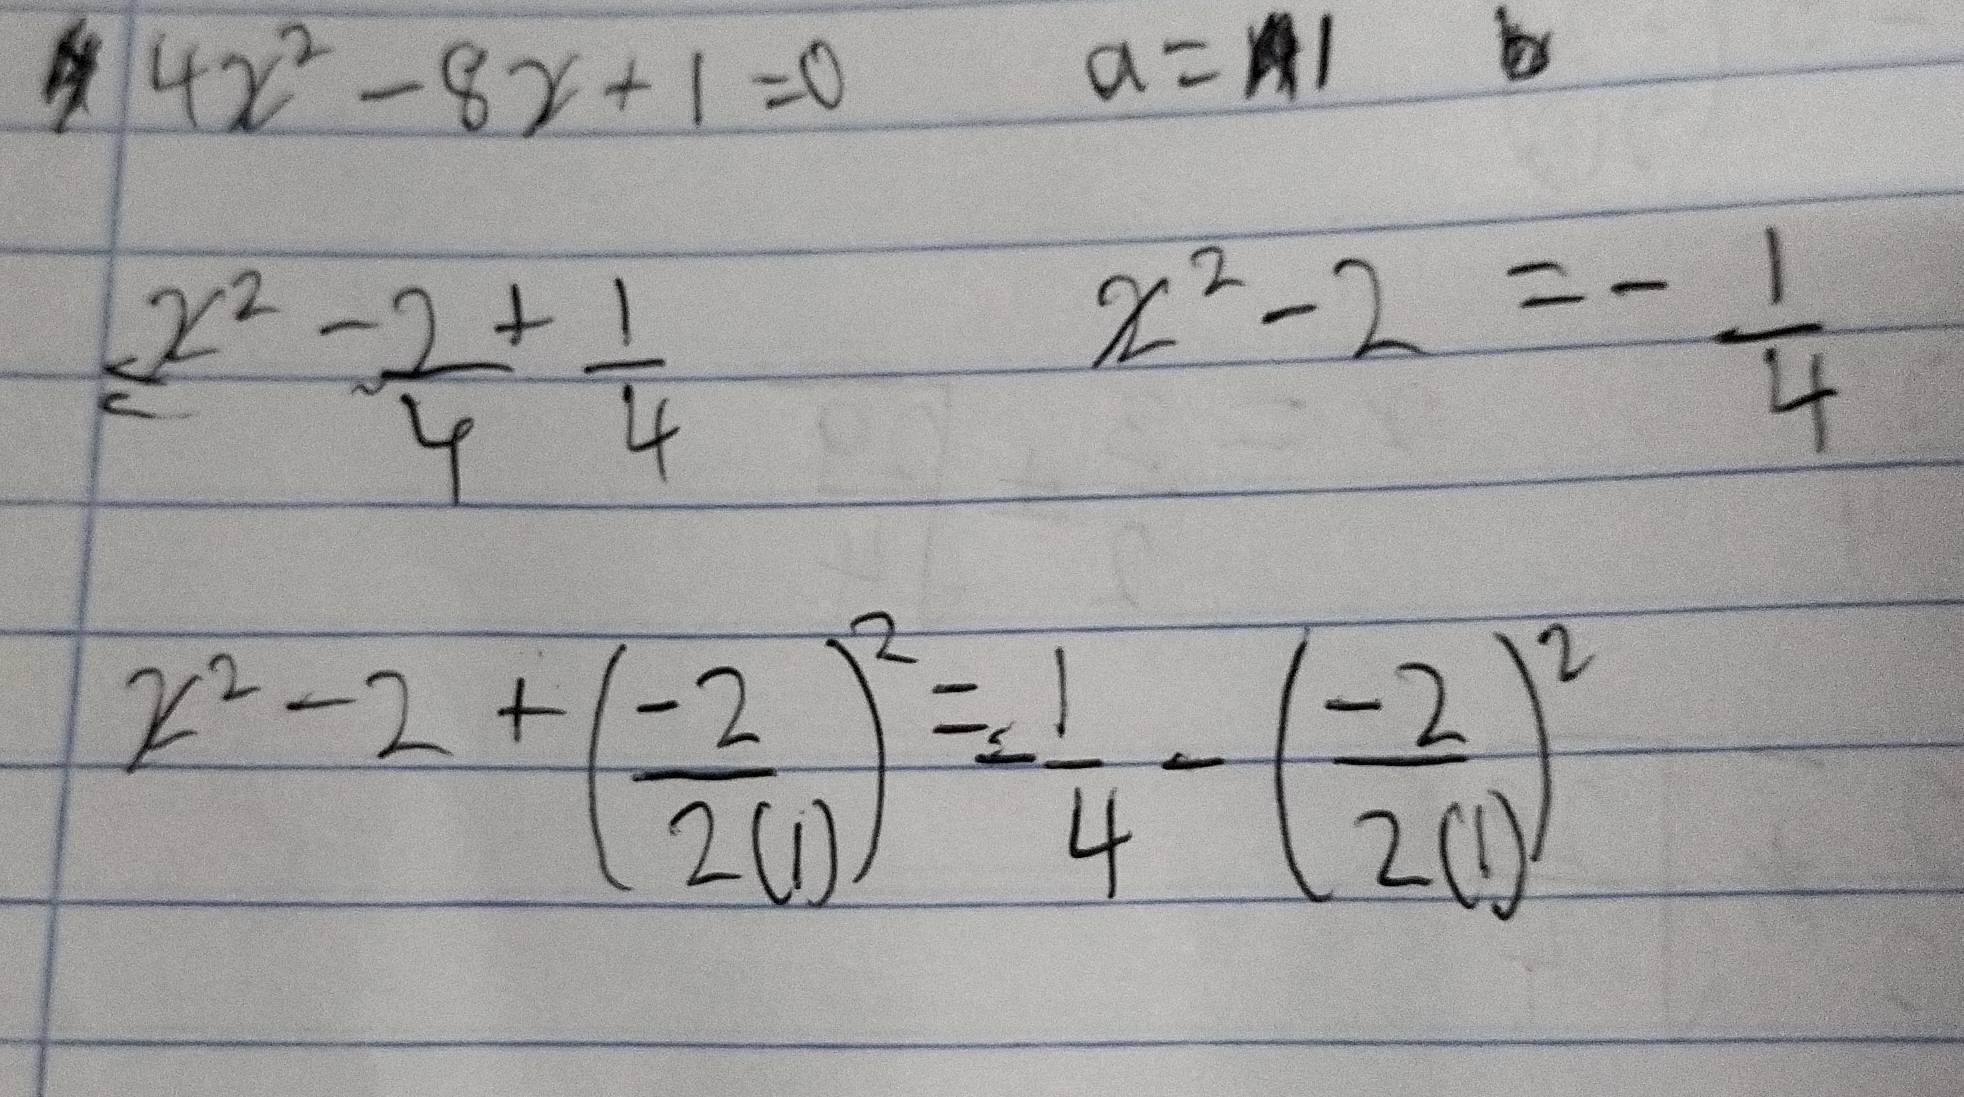 4x² - 8x + 1 = 0 a = 1 b
x² - 2/4 + 1/4 x² - 2 = - 1/4
x² - 2 + (-2/2(1))² = - 1/4 - (-2/2(1))²